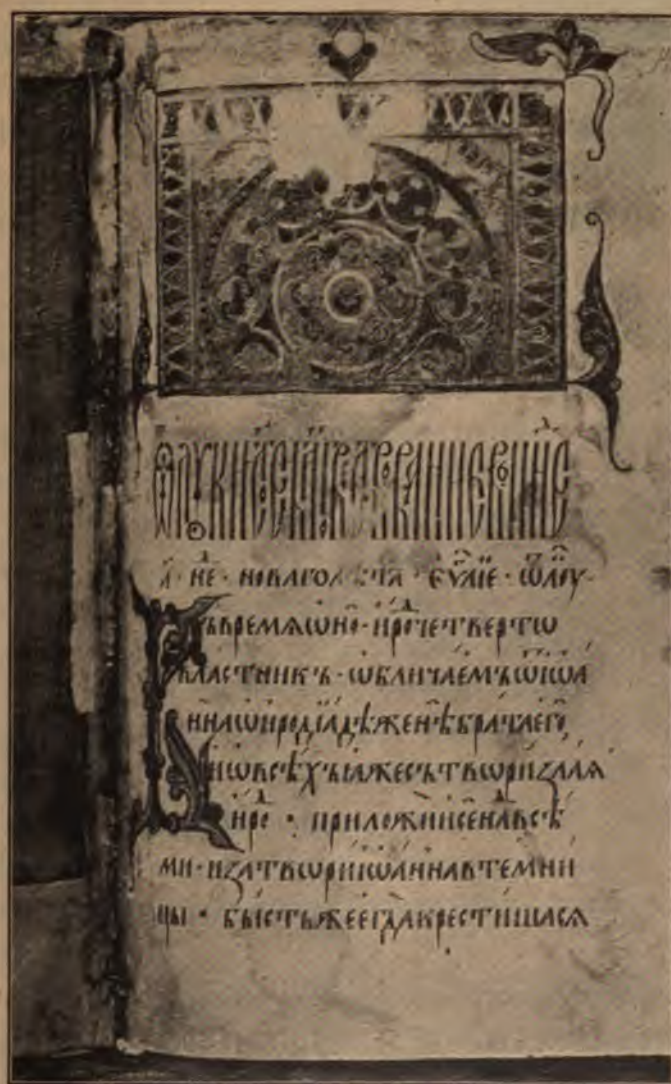 а҃ · не҃ · новаго лѣта · еѵ҃лїе · ѿ лоу
въ время ѡно · иро҃ четвертѡ
властникъ · ѡбличаемъ ѿ іѡа
нна ѡ иродїадѣ женѣ брата его
и ѡ всѣхъ ꙗже сътвори злаꙗ
иро҃ · приложи и се на҃ всѣ
ми · и затвори іѡанна в темни
цы · бысть же егда крестишася